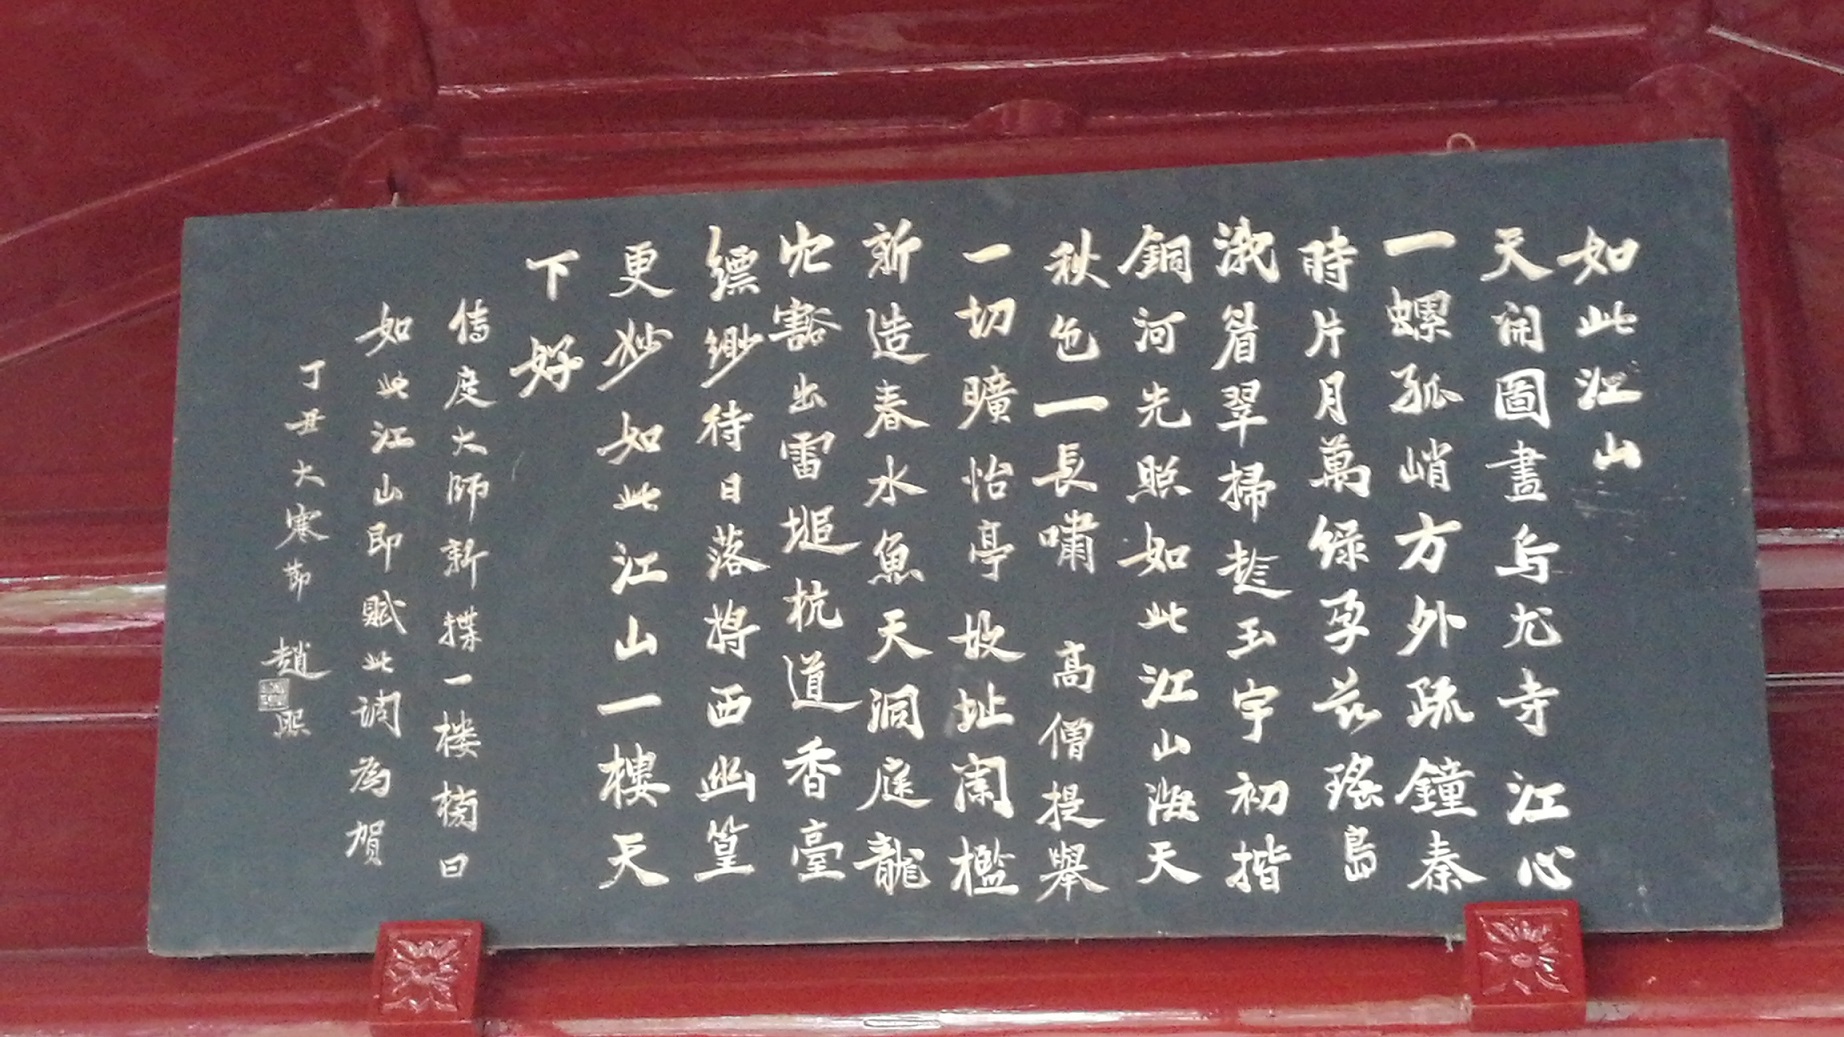 如此江山
天開圖畫烏尤寺江心
一螺孤峭方外疏鐘秦
時片月萬綠孕茲瑤島
濃眉翠掃趁玉宇初揩
銅河先照如此江山海天
秋色一長嘯 高僧提舉
一切曠怡亭故址闌檻
新造春水魚天洞庭龍
穴豁出雷塠杭道香臺
縹緲待日落將西幽篁
更妙如此江山一樓天
下好
傳度大師新揲一樓榜曰
如此江山即賦此調為賀
丁丑大寒節 趙熙